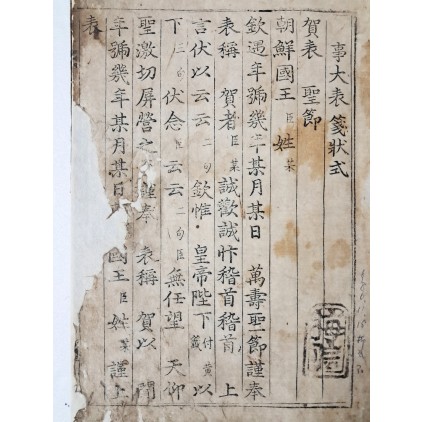 事大表箋狀式
賀表 聖節
朝鮮國王臣姓某
欽遇年號幾年某月某日 萬壽聖節謹奉
表稱 賀者臣某誠歡誠忭稽首稽首 上
言伏以云云二句欽惟 皇帝陛下付黃籤以
下二句伏念臣云云二句臣無任望 天仰
聖激切屏營之 謹奉 表稱 賀以 聞
年號幾年某月某日 國王臣姓某謹上
表